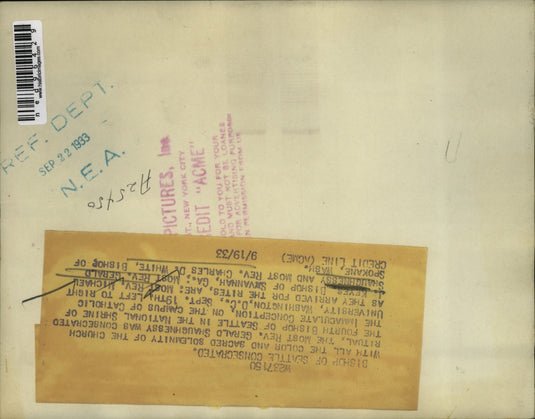 W237150
BISHOP OF SEATTLE CONSECRATED.
WITH ALL THE COLOR AND SACRED SOLEMNITY OF THE CHURCH
RITUAL, THE MOST REV. GERALD SHAUGHNESSY WAS CONSECRATED
THE FOURTH BISHOP OF SEATTLE IN THE NATIONAL SHRINE OF
THE IMMACULATE CONCEPTION, ON THE CAMPUS OF CATHOLIC
UNIVERSITY, WASHINGTON, D.C., SEPT. 19TH. LEFT TO RIGHT
AS THEY ARRIVED FOR THE RITES, ARE: MOST REV. MICHAEL
KEYES, BISHOP OF SAVANNAH, GA., MOST REV. GERALD
SHAUGHNESSY AND MOST REV. CHARLES D. WHITE, BISHOP OF
SPOKANE, WASH.
CREDIT LINE (ACME) 9/19/33
REF. DEPT.
SEP 22 1933
N.E.A.
A25450
PICTURES, Inc.
ST., NEW YORK CITY
EDIT "ACME"
OLD TO YOU FOR YOUR
AND MUST NOT BE LOANED
FOR ADVERTISING PURPOSES
N PERMISSION FROM US
U